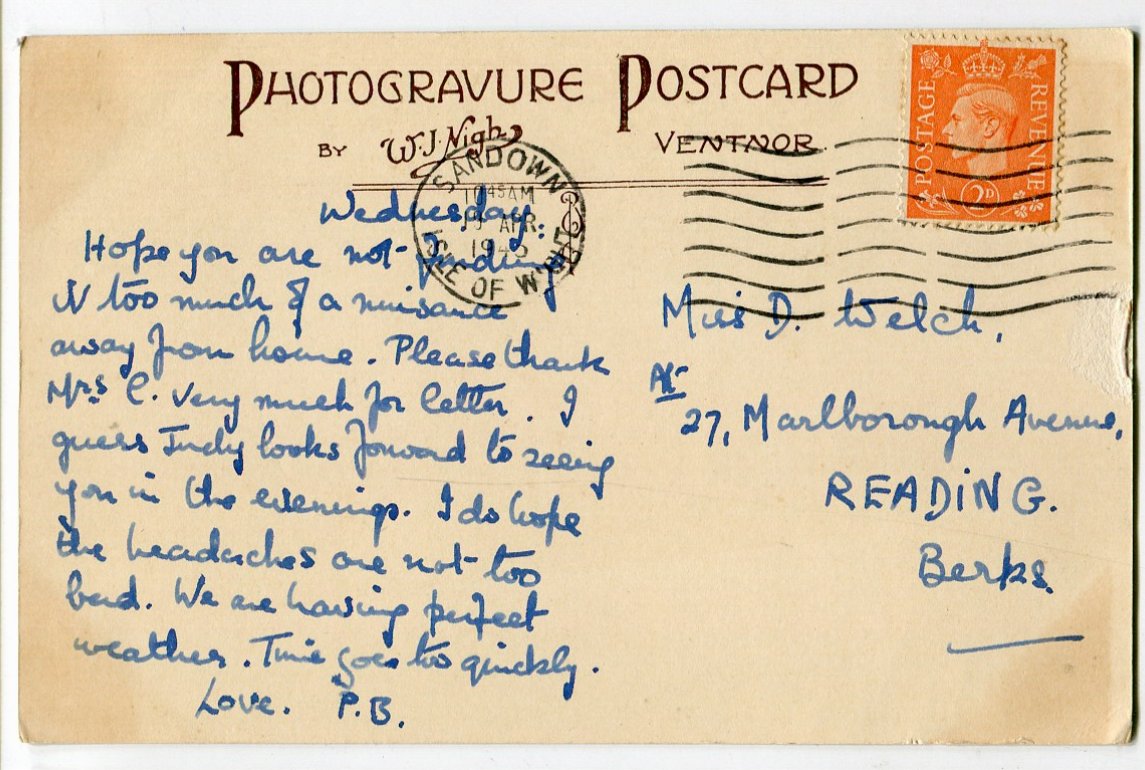 PHOTOGRAVURE POSTCARD
BY W.J. Nigh VENTNOR.
SANDOWN
10 45 AM
APR
ISLE OF WIGHT
POSTAGE REVENUE
2D
Wednesday.
Hope you are not finding
it too much of a nuisance
away from home. Please thank
Mrs C. very much for letter. I
guess Judy looks forward to seeing
you in the evenings. I do hope
the headaches are not too
bad. We are having perfect
weather. Time goes too quickly.
Love. P.B.
Miss D. Welch,
At
27, Marlborough Avenue,
READING.
Berks.